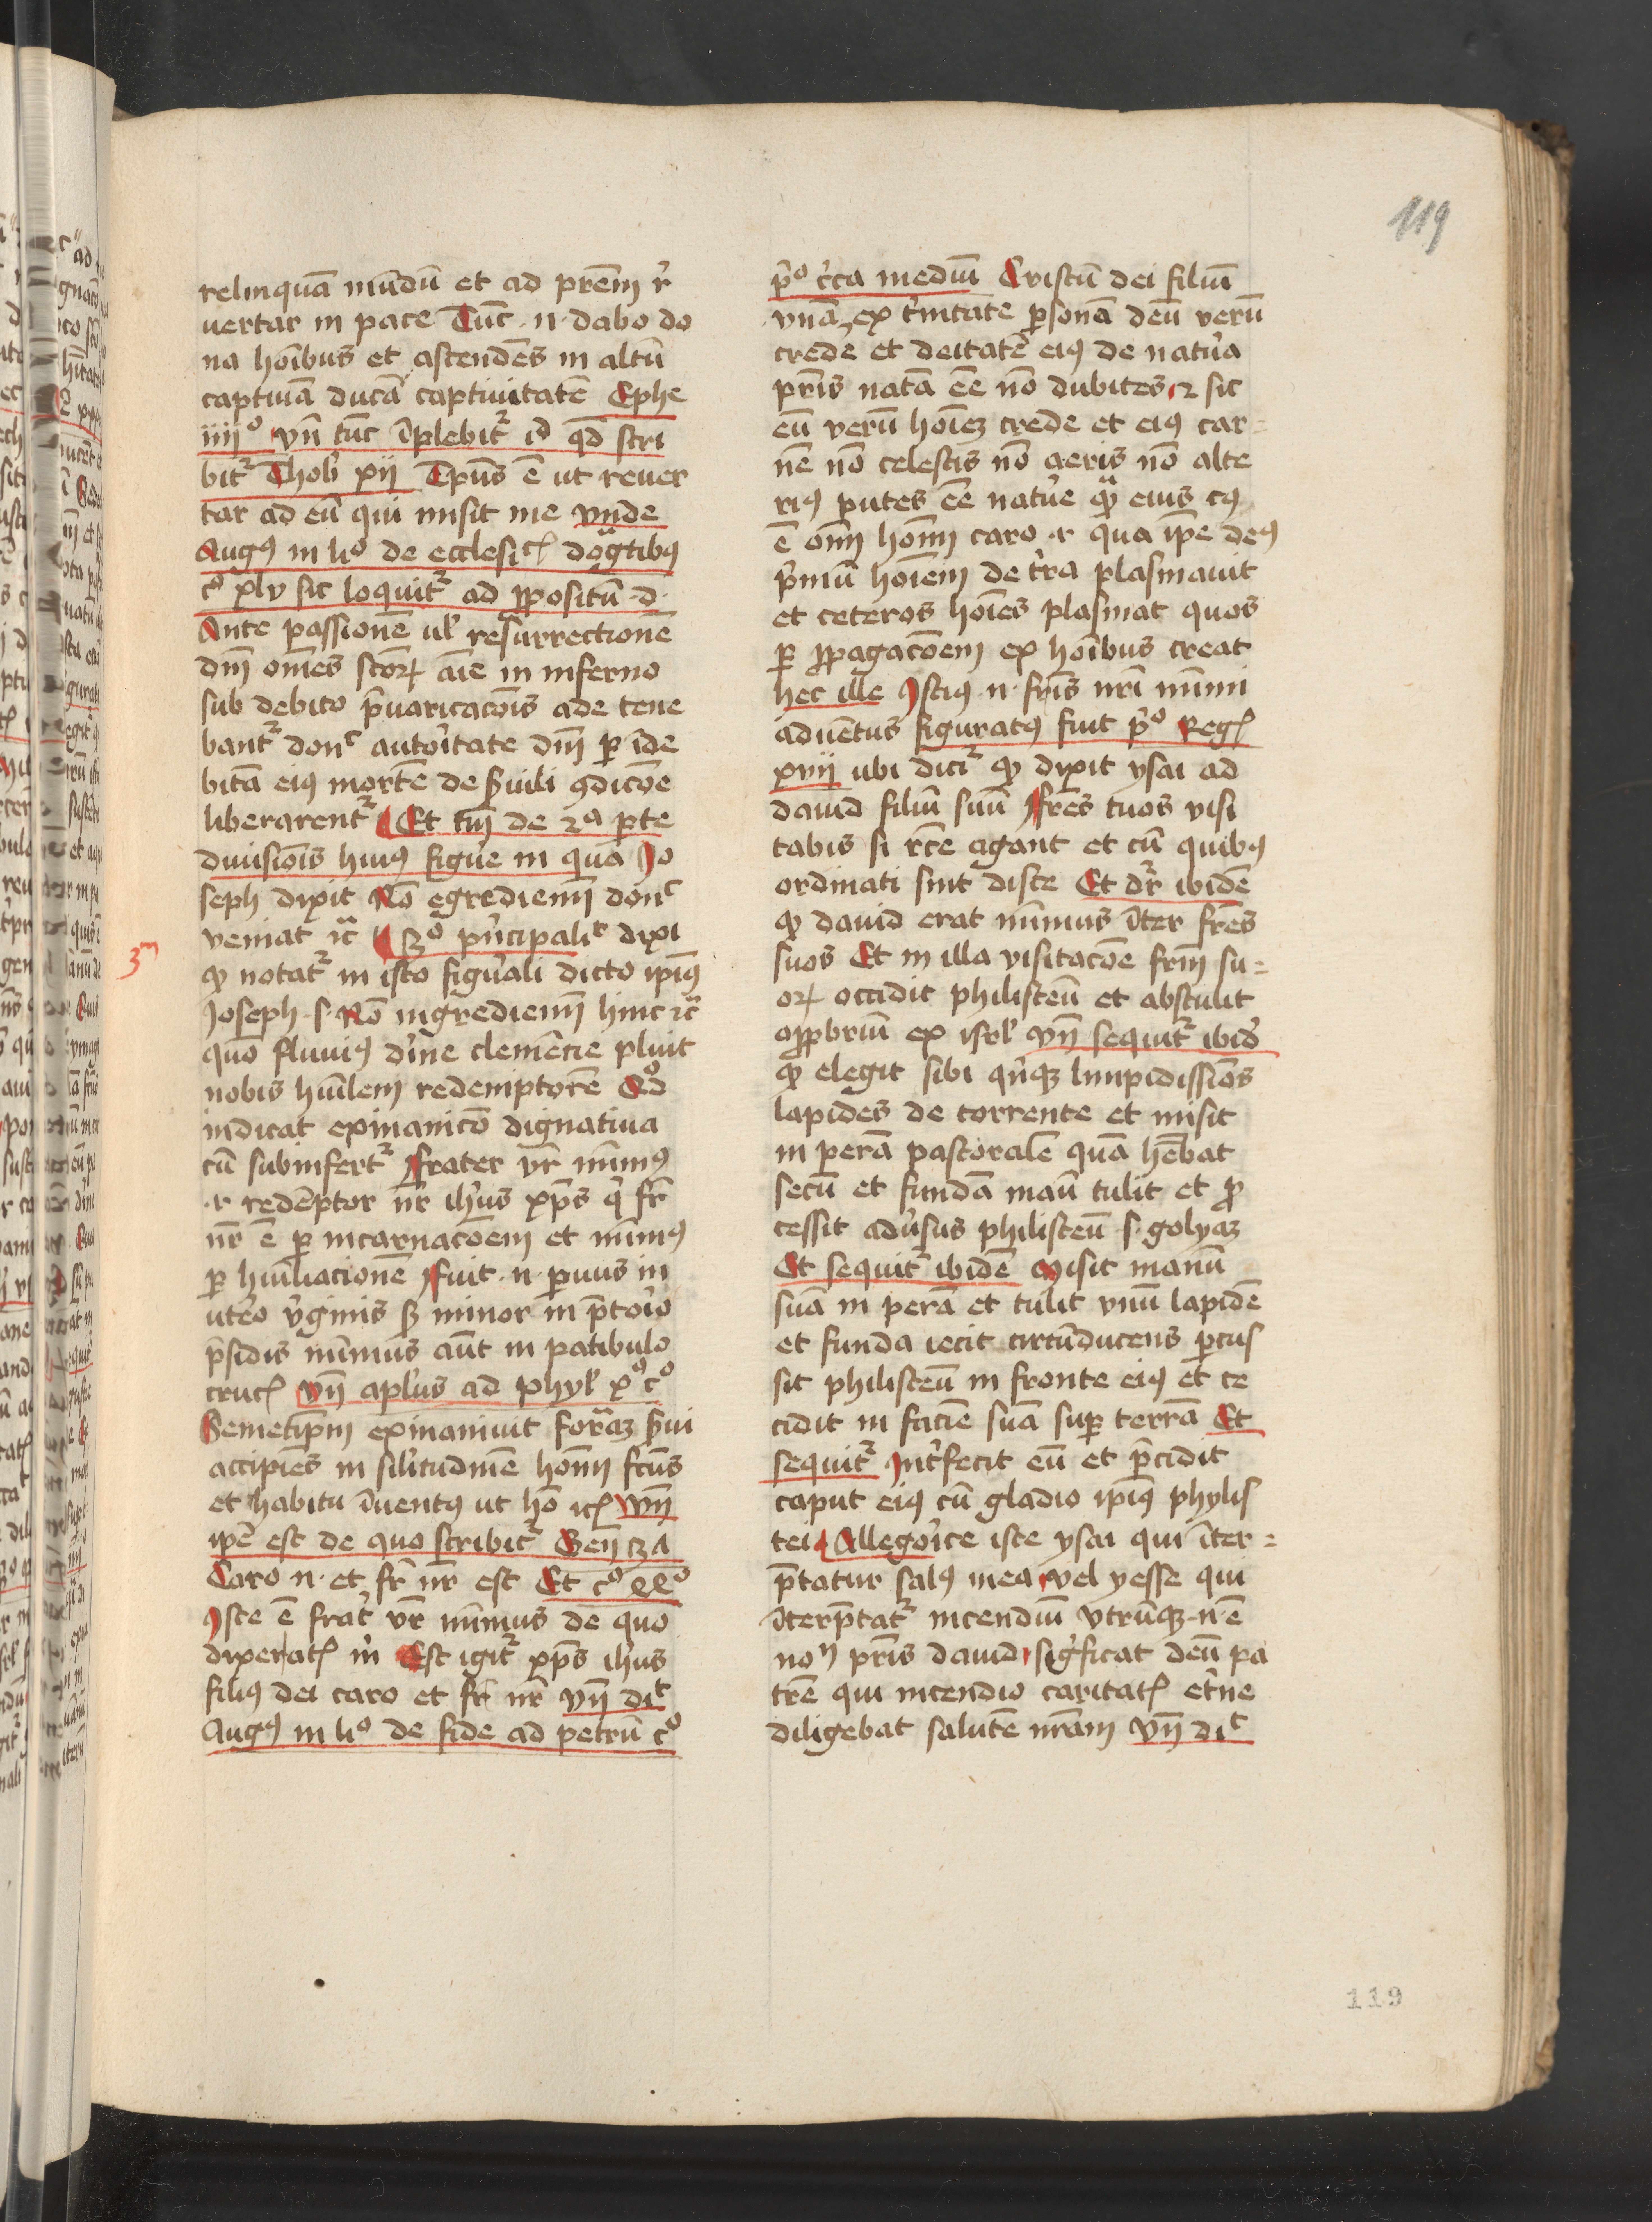 119
relinquā mūdū et ad prēm r̄
uertar in pace Tūc ·n· dabo do
na hoībus et ascendēs in altū
captiuā ducā captiuitatē Ephe
iiiiº vn̄ tūc īplebit᷑ id qd̄ scri
bit᷑ Thob̄ xij Tp̄us ē ut reuer
tar ad eū qui misit me vnde
Augꝯ in liº de ecclesicꝭ dogᵃtibꝯ
cº xlv sic loquit᷑ ad ꝓpositū ·d·
Ante passionē ul̄ resurrectionē
dm̄ om̄es scōꝝ aīe in inferno
sub debito p̄uaricacōis ade tene
bant᷑ donᶜ autoītate dm̄ ꝑ īde
bitā eiꝯ mortē de s̄uili ꝯdicōe
liberarent᷑ Et tm̄ de 2ª ꝑte
diuisiōis huiꝯ figūe in qua Jo
seph dixit Nō egrediemī donᶜ
veniat ⁊c̄ 3º p̄ncipalit dixi
ꝙ notat᷑ in isto figūali dicto ipīꝯ
Joseph ·s· Nō ingrediemī hinc ⁊c̄
3m
quo fluuiꝯ dīne clemēcie pluit
nobis hūilem redemptorē Qd̊
indicat exinanicō dignatiua
cū subinfert᷑ frater vr̄ mīmꝯ
·i· redēptor nr̄ ihūs xp̄s q̇ fr̄
nr̄ ē ꝑ incarnacōem et mīmꝯ
ꝑ hūiliacionē fuit ·n· ꝑuus in
utēo v̄ginis sꝫ minor in p̄torīo
p̄sidis mīmus aūt in patibulo
crucꝭ vn̄ apl̄us ad phyl̄ xº cº
Semetip̄m exinaniuit formāꝫ s̄ui
accipiēs in sil̄itudinē hoīm fc̄us
et habitu īuentꝯ ut hō ⁊cꝭ vn̄
ip̄e est de quo scribit᷑ Gen̄ 3A
Caro n· et fr̄ nr̄ est Et cº
Iste ē frat̄ vr̄ mīmus de quo
dixeratꝭ m̄ Est igit᷑ xp̄s ihūs
filiꝯ dei caro et fr̄ nr̄ vn̄ diᵗ
Augꝯ in liº de fide ad petrū cº
p̄º c̄ca mediū Cristū dei filiū
vnā ex t̄nitate ꝑsonā deū verū
crede et deitatē eiꝯ de natūa
pr̄is natā eē nō dubites ⁊ sic
eū verū hoīeꝫ crede et eiꝯ car=
nē nō celestis nō aeris nō alte
riꝯ putes eē natūe qᵃ eius cꝯ
ē oīm hoīm caro ·i· qua ip̄e deꝯ
p̄mū hoīem de t̄ra plasmauit
et ceteros hoīes plasmat quos
ꝑ ꝓpagacōem ex hoībus creat
hec ille Istiꝯ ·n· fr̄is nr̄i mīmi
aduētus figuratꝯ fuit p̄º Regꝭ
xvij ubi dicit᷑ ꝙ dixit ysai ad
dauid filiū suū fr̄es tuos visi
tabis si rc̄e agant et cū quibꝯ
ordinati sint disce Et dr̄ ibidē
ꝙ dauid erat mīmus īter fr̄es
suos Et in illa visitacōe fr̄m su=
oꝝ occidit philisteū et abstulit
oꝓbriū ex isrl̄ vn̄ sequit᷑ ibid̄
ꝙ elegit sibi qn̄qꝫ limpidissiōs
lapides de torrente et misit
in perā pastoralē quā hēbat
secū et fundā manū tulit et ꝓ
cessit adūsus philisteū ·s· golyaꝫ
Et sequit᷑ ibidē Misit manū
suā in perā et tulit vnū lapidē
et funda iecit circūducens ꝑcus
sit philisteū in fronte eiꝯ et ce
cidit in faciē suā suꝑ terrā Et
sequit᷑ Int̄fecit eū et p̄cidit
caput eiꝯ cū gladio ipīꝯ phylis
tei Allegoīce iste ysai qui īter=
p̄tatur salꝯ mea vel yesse qui
īterp̄tat᷑ incendiū vtrūqꝫ ·n· ē
noⁿ pr̄is dauid sig̅ficat deū pa
trē qui incendio caritatꝭ et̄ne
diligebat salutē nr̄am vn̄ diᵗ
119